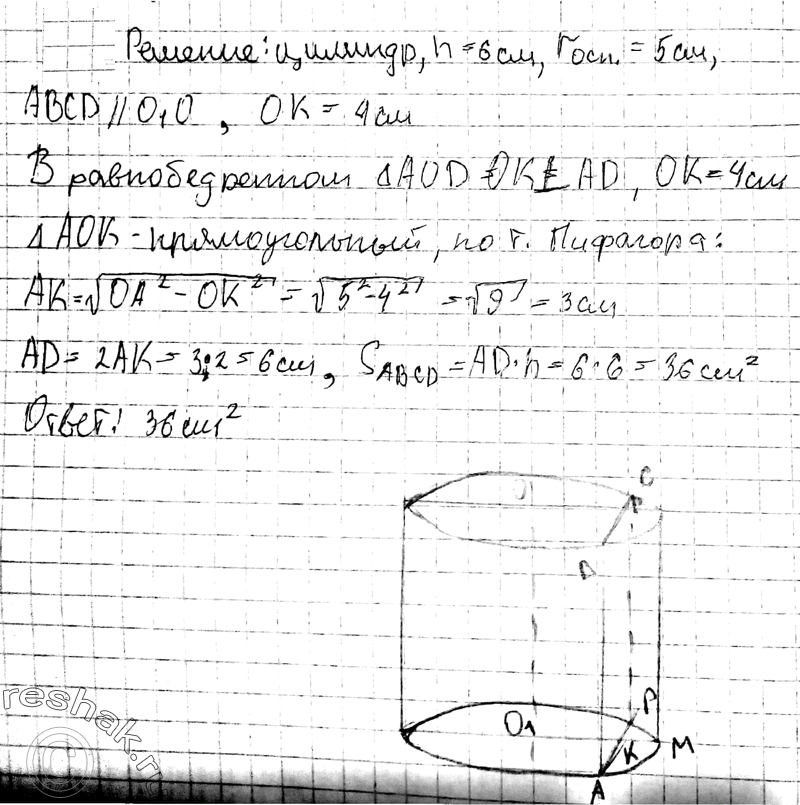 Решение: цилиндр, h = 6 см, rосн. = 5 см,
ABCD // O₁O, OK = 4 см
В равнобедренном △AOD OK ⊥ AD, OK = 4 см
△AOK - прямоугольный, по т. Пифагора:
AK = √(OA² - OK²) = √(5² - 4²) = √9 = 3 см
AD = 2AK = 3·2 = 6 см, S_ABCD = AD·h = 6·6 = 36 см²
Ответ: 36 см²
C
O₁
P
K
M
A
reshak.ru
©